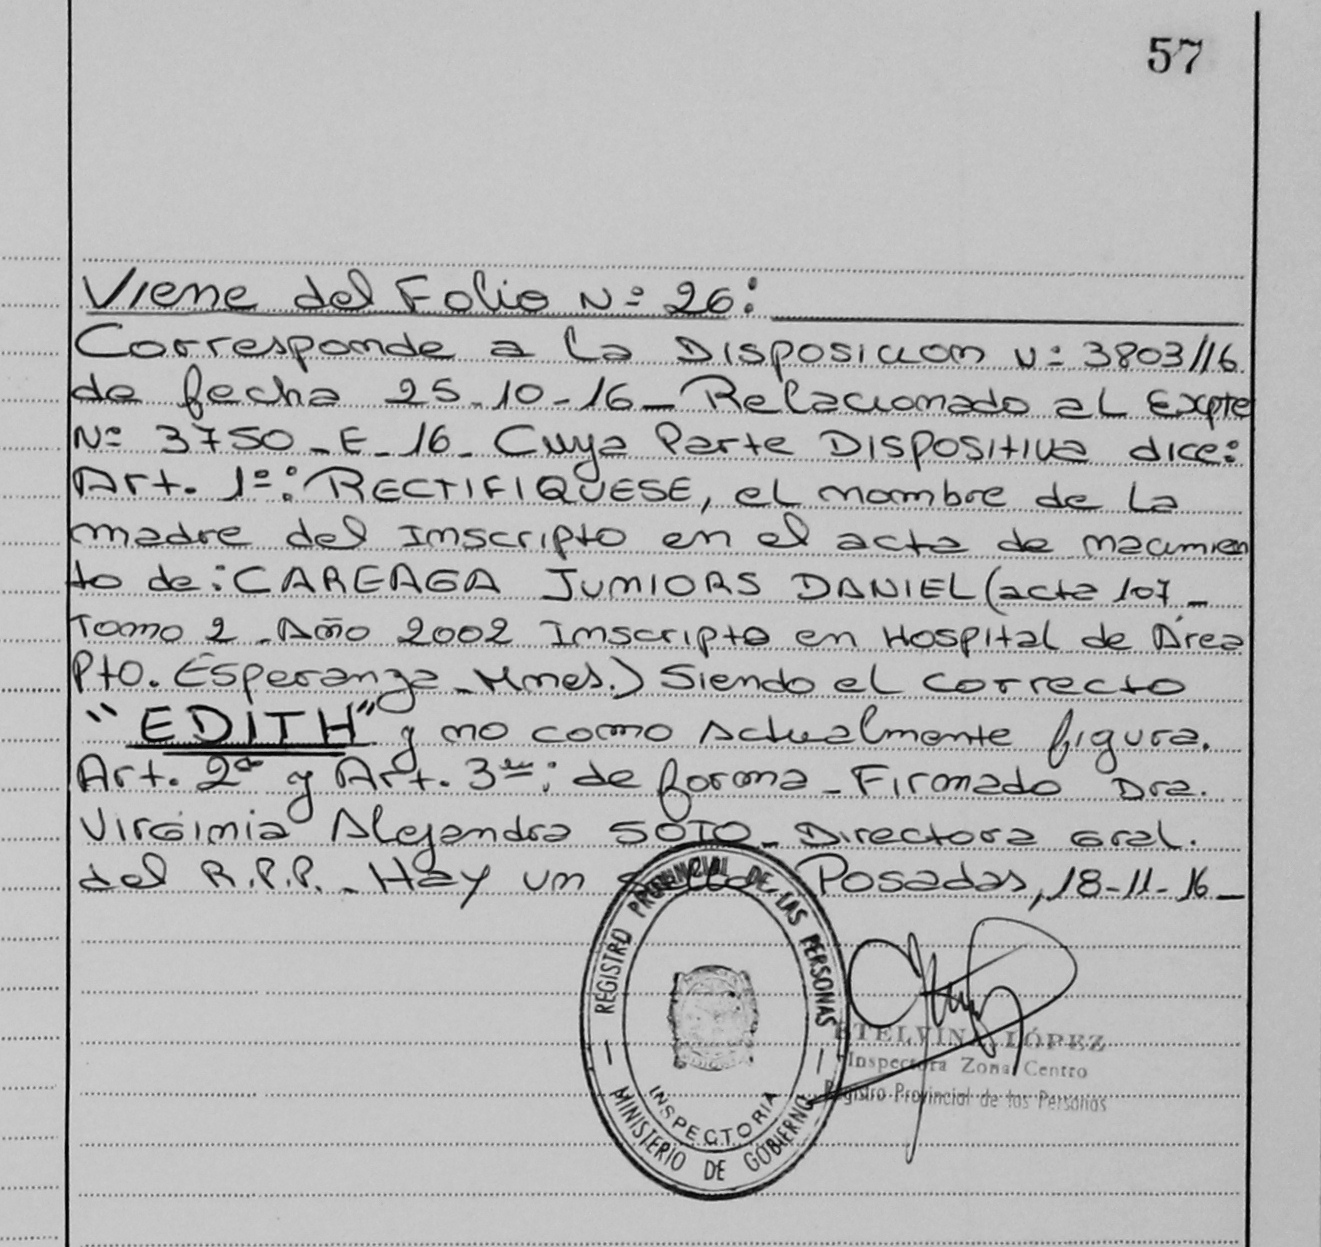 57
Viene del Folio Nº 26:
Corresponde a la Disposicion Nº 3803/16
de fecha 25-10-16_ Relacionado al Expte
Nº 3750_E_16_ Cuya Parte Dispositiva dice:
Art. 1º: RECTIFIQUESE, el nombre de la
madre del Inscripto en el acta de nacimien
to de: CAREAGA JUNIORS DANIEL (acta 107_
Tomo 2_Año 2002 Inscripto en Hospital de Área
Pto. Esperanza_Mnes.) Siendo el correcto
"EDITH" y no como actualmente figura.
Art. 2º y Art. 3º: de forma_Firmado Dra.
Virginia Alejandra SOTO_Directora Gral.
del R.P.P._Hay un Sello_ Posadas, 18-11-16_
REGISTRO PROVINCIAL DE LAS PERSONAS
INSPECTORIA
MINISTERIO DE GOBIERNO
ETELVINA LÓPEZ
Inspectora Zona Centro
Registro Provincial de las Personas